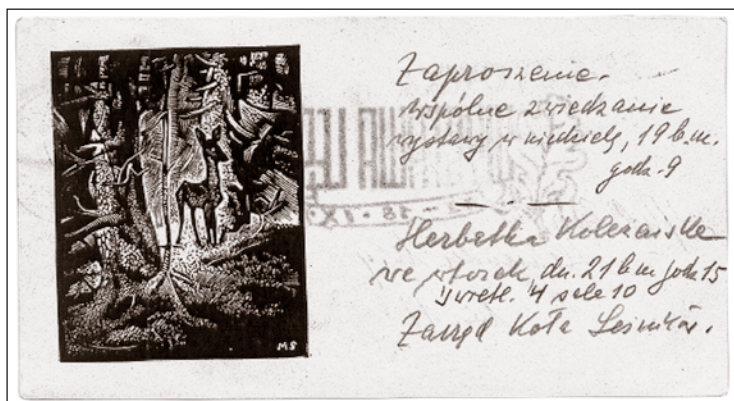 Zaproszenie.
Wspólne zwiedzanie
wystawy w niedzielę, 19 b.m.
godz. 9
Herbatka Koleżeńska
we wtorek, dn. 21 b.m. godz. 15
4 sala 10
Zarząd Koła Leśników.
MS